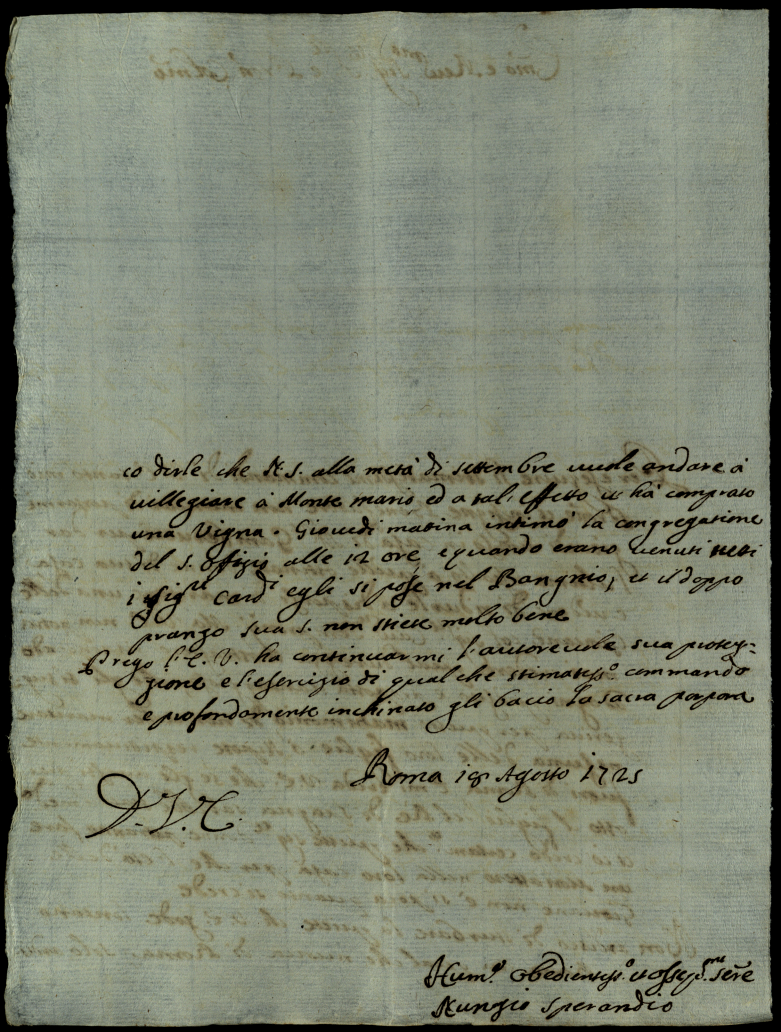 co dirle che N. S. alla metà di settembre vuole andare à
villegiare à Monte mario, ed a tal' effetto vi hà comprato
una Vigna. Giovedì matina intimò la congregatione
del S. offizio alle 12 ore, e quando erano venuti tutti
i Sig.ri Card.i egli si pose nel Bangnio, et il doppo
pranzo sua S. non stiete molto bene
Prego l'E. V. ha continuarmi l'autorevole sua protez-
zione e l'esercizio di qualche stimatiss.o commando
e profondamente inchinato gli bacio la sacra porpora
Roma 18 Agosto 1725
D. V. E.
Hum.o obedientiss.o et osseq.mo
Nunzio Sperandio